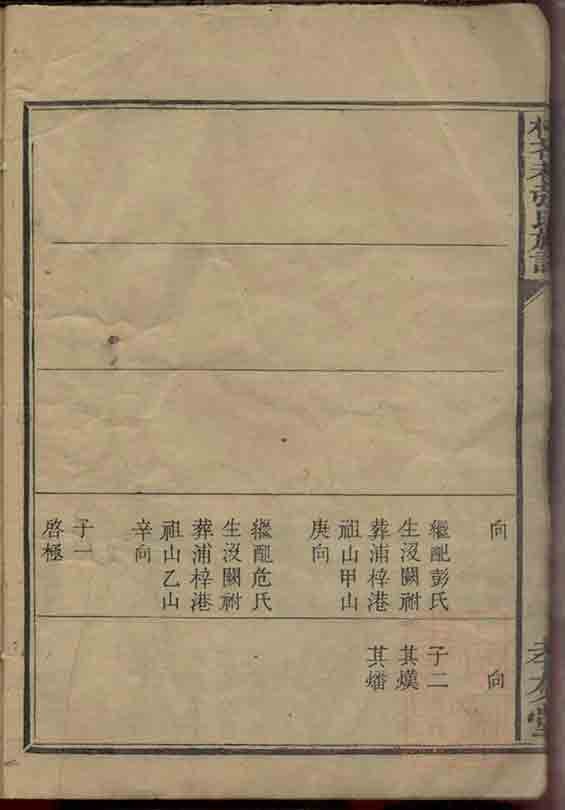 張氏族譜
孝友堂
向
繼配彭氏
生沒闕祔
葬浦梓港
祖山甲山
庚向
繼配危氏
生沒闕祔
葬浦梓港
祖山乙山
辛向
子一
啓極
向
子二
其熯
其燔